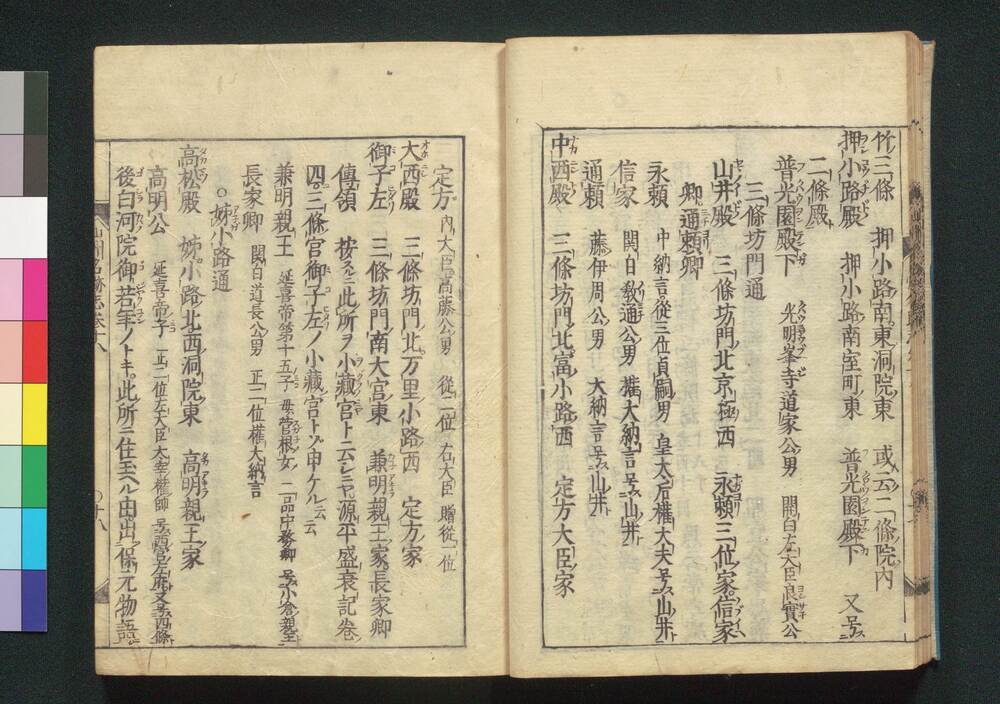 竹三條　押小路南東洞院東　或云二條院内
押小路殿　押小路南室町東　普光園殿下　又号ス
二條殿ト
普光園殿下　光明峯寺道家公男　関白左大臣良實公
三條坊門通
山井殿　三條坊門北京極西　永頼三位家信家
卿　通頼卿
永頼　中納言従三位貞嗣男　皇太后権大夫号ス山井ト
信家　関白教通公男　権大納言号ス山井ト
通頼　藤伊周公男　大納言号ス山井ト
中西殿　三條坊門北富小路西　定方大臣家
定方　内大臣高藤公男　従二位　右大臣　贈従一位
大西殿　三條坊門北万里小路西　定方家
御子左　三條坊門南大宮東　兼明親王家長家卿
傳領　按スルニ此所ヲ小藏宮ト云シニヤ源平盛衰記巻
四ニ三條宮御子左ノ小藏宮トゾ申ケル云云
兼明親王　延喜帝第十五子　母菅根女　二品中務卿　号ス小倉親王ト
長家卿　関白道長公男　正二位権大納言
○姉小路通
高松殿　姉小路北西洞院東　高明親王家
高明公　延喜帝子　正二位左大臣大宰権帥　号ス西宮左府又号ス四條ト
後白河院御若年ノトキ此所ニ住玉ヘル由出保元物語ニ
山州名跡志巻十八
○十八